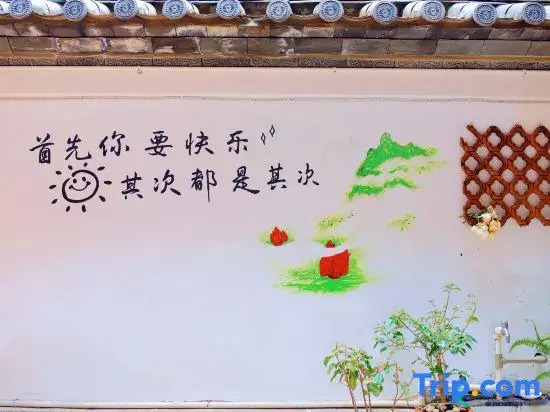 首先你要快乐
其次都是其次
Trip.com